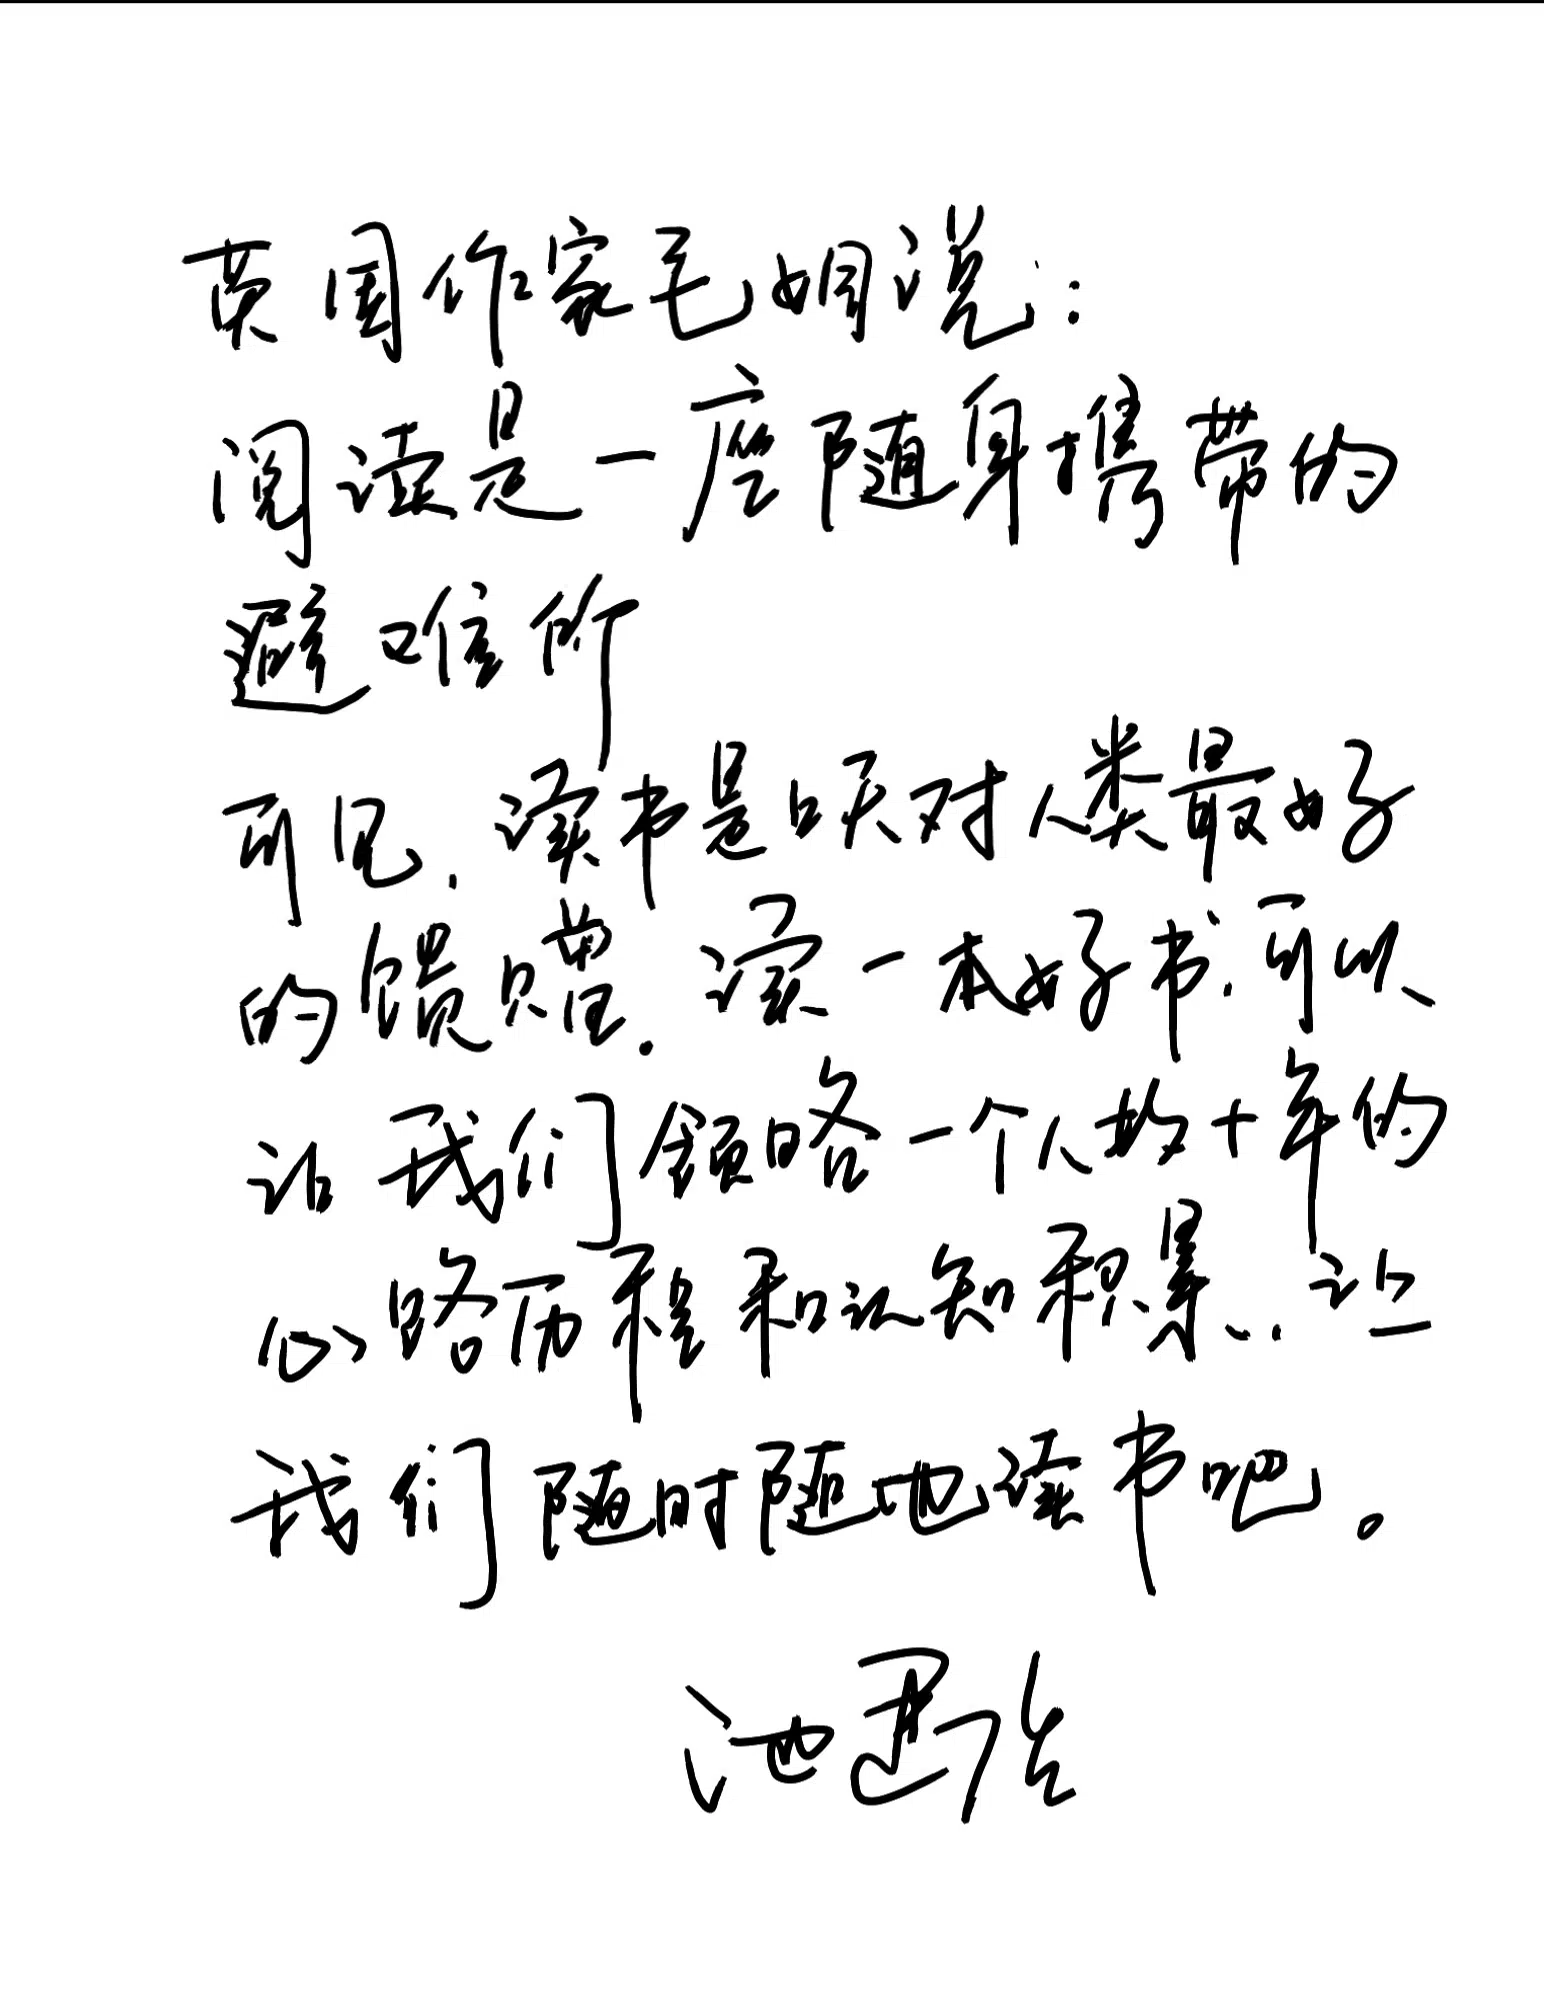 英国作家毛姆说：
阅读是一座随身携带的
避难所
可见，读书是昨天对人类最好
的馈赠。读一本好书，可以
让我们领略一个人数十年的
心路历程和认知积累，让
我们随时随地读书吧。
池